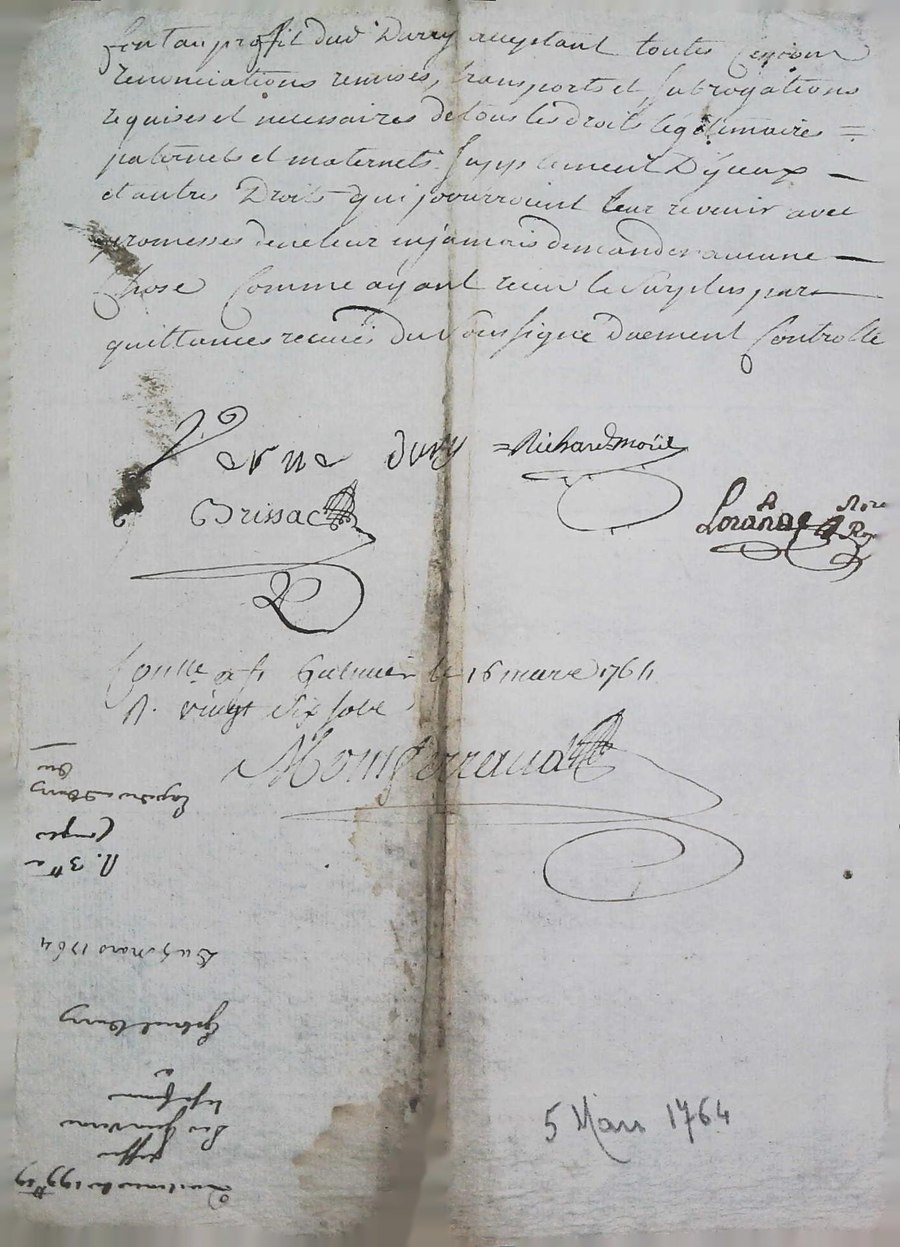 font au profit dud Durry acceptant toutes cessions
renonciations remises, transports et subrogations
requises et necessaires de tous les droits légitimaires =
paternels et maternels supplement D'yceux —
et autres Droits qui pourroient leur revenir avec
promesses de ne leur en jamais demander aucune —
Chose Comme ayant recue le Surplus par
quittances recuës du Soussigné Duement Controllé
Verne dury = Richard moïse
Brissac
Lorañge Nore Roy
Conllé a St Galmier le 16 mars 1764
R. vingt six sols
Montferraud
Quittance de 199tt 19
pour
Gabriel Dury
Du 5 mars 1764
R. 3tt
5 Mars 1764